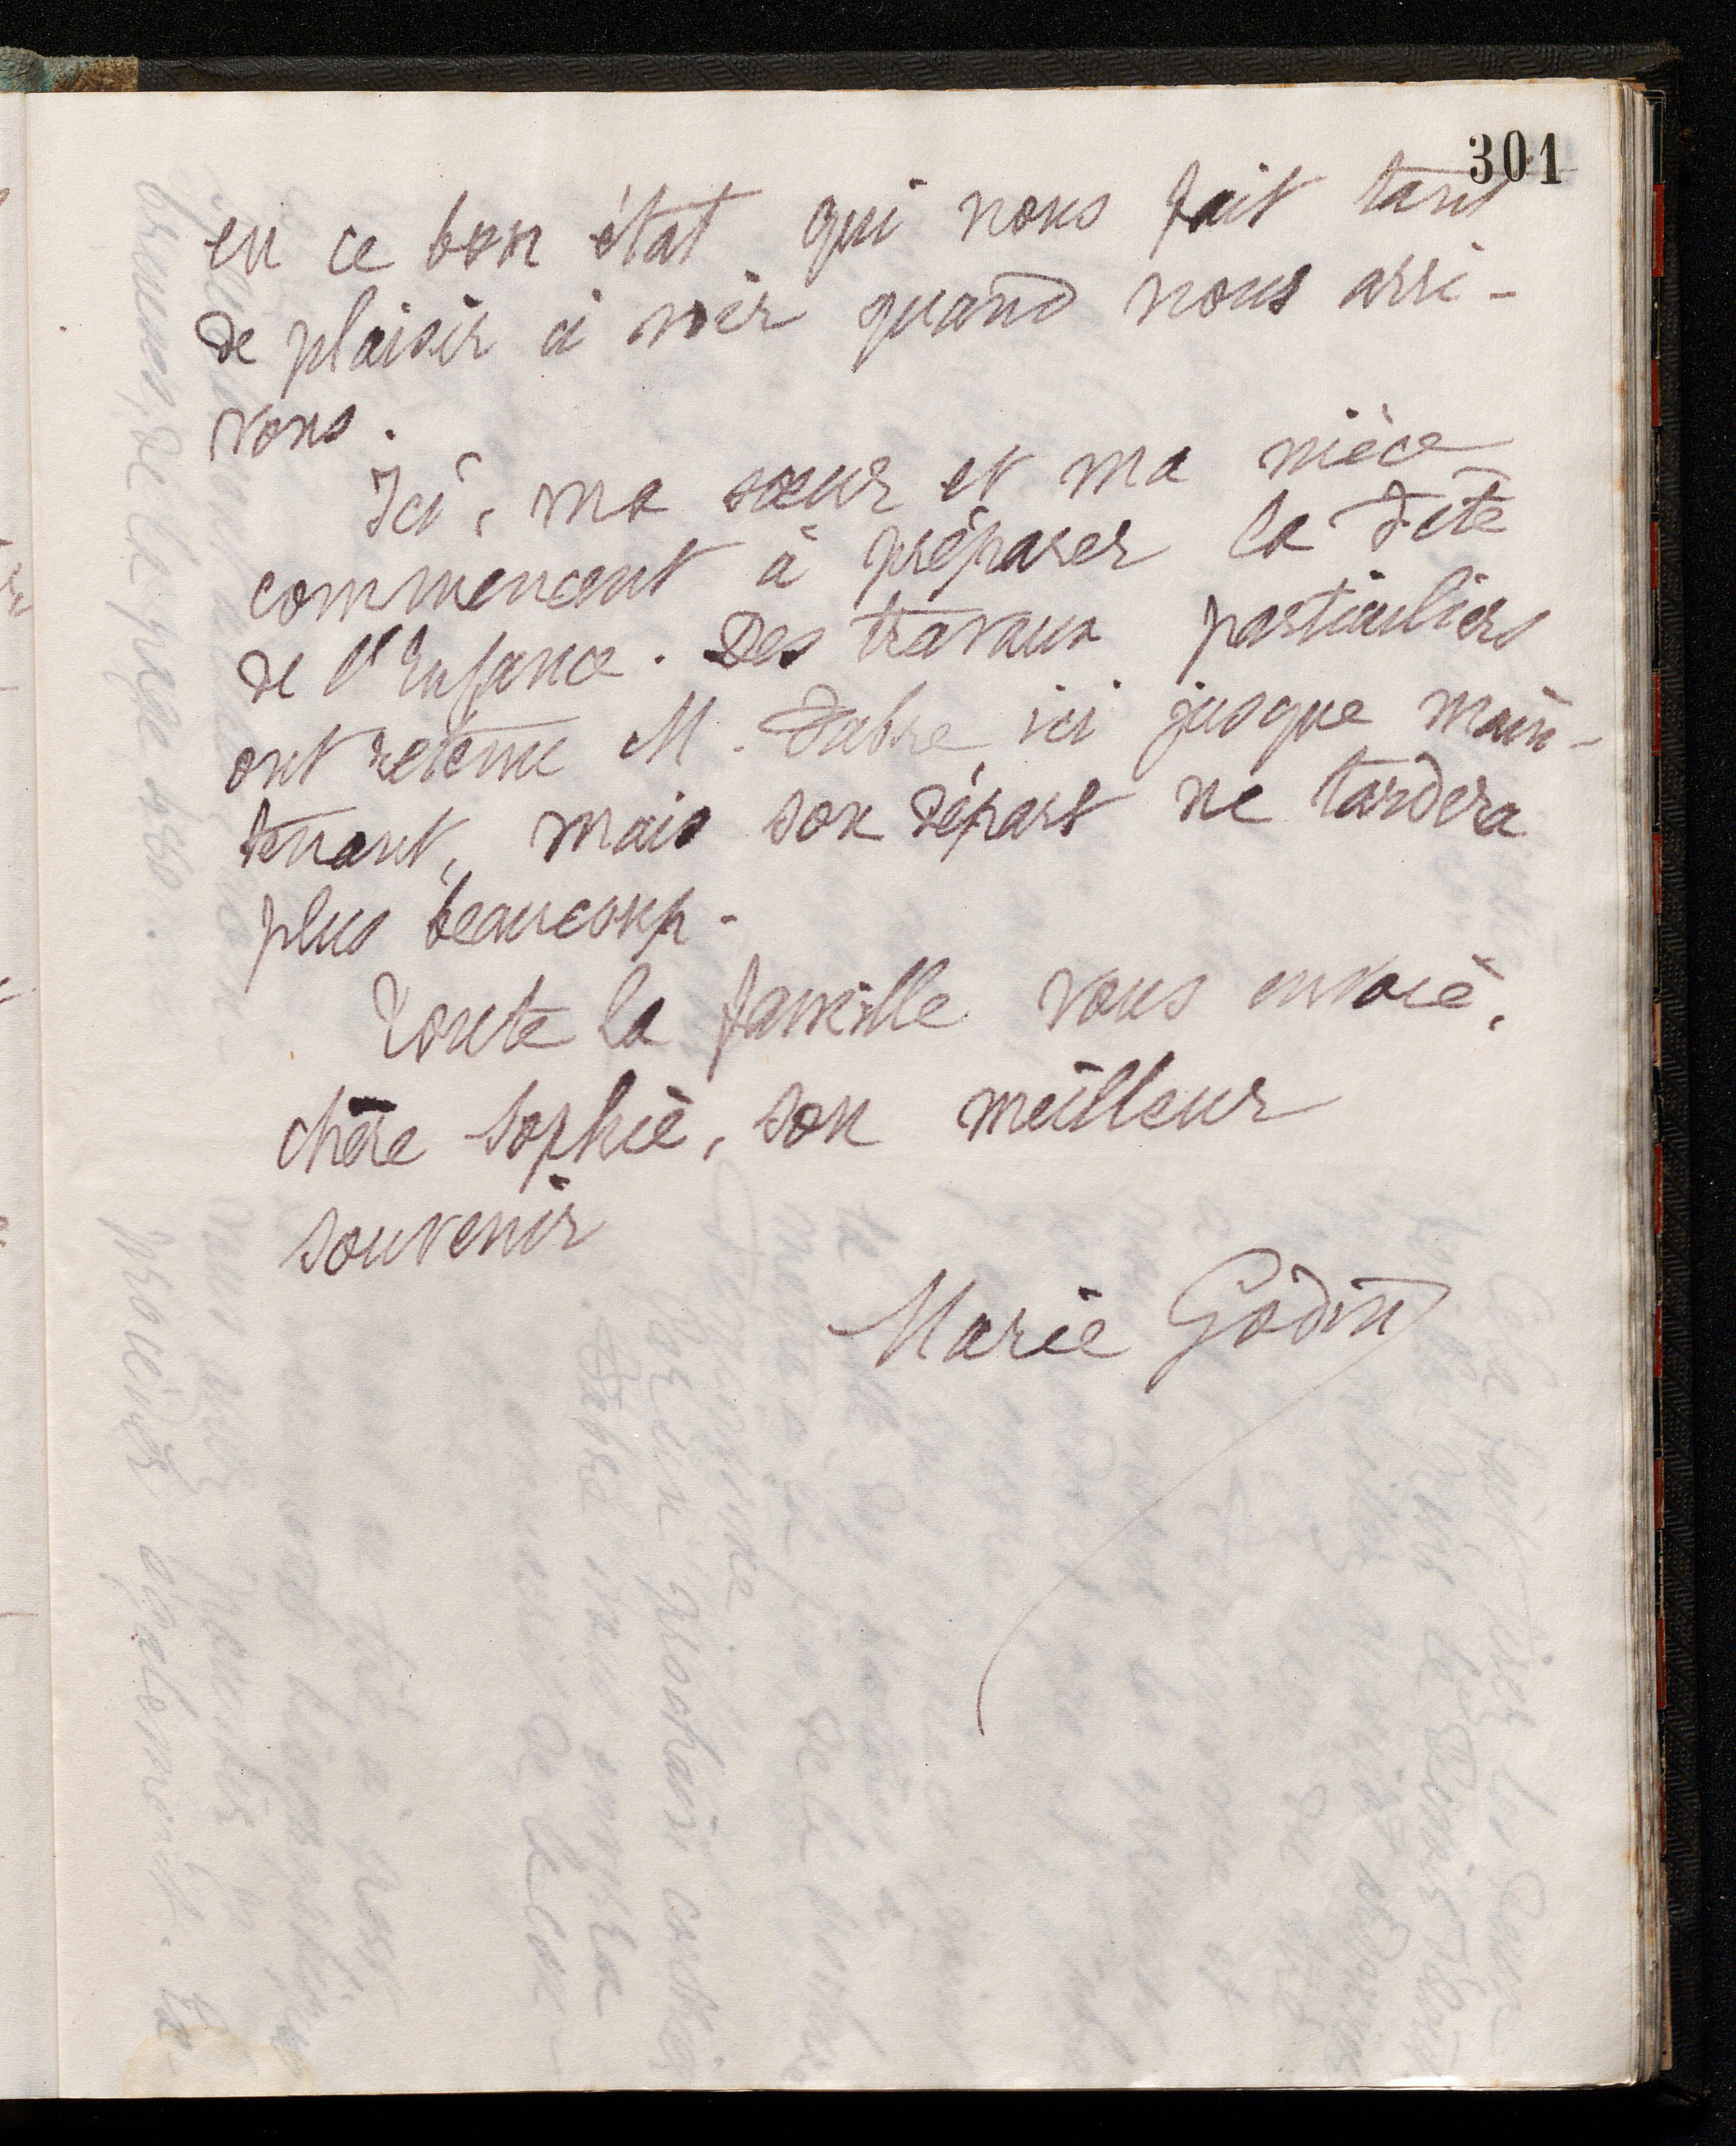 301
en ce bon état qui nous fait tant
de plaisir à voir quand nous arri-
vons.
Ici, ma sœur et ma nièce
commencent à préparer la Fête
de l'Enfance. Des travaux particuliers
ont retenu M. Fabre ici jusque main-
tenant, mais son départ ne tardera
plus beaucoup.
Toute la famille vous envoie,
chère Sophie, son meilleur
souvenir
Marie Godin